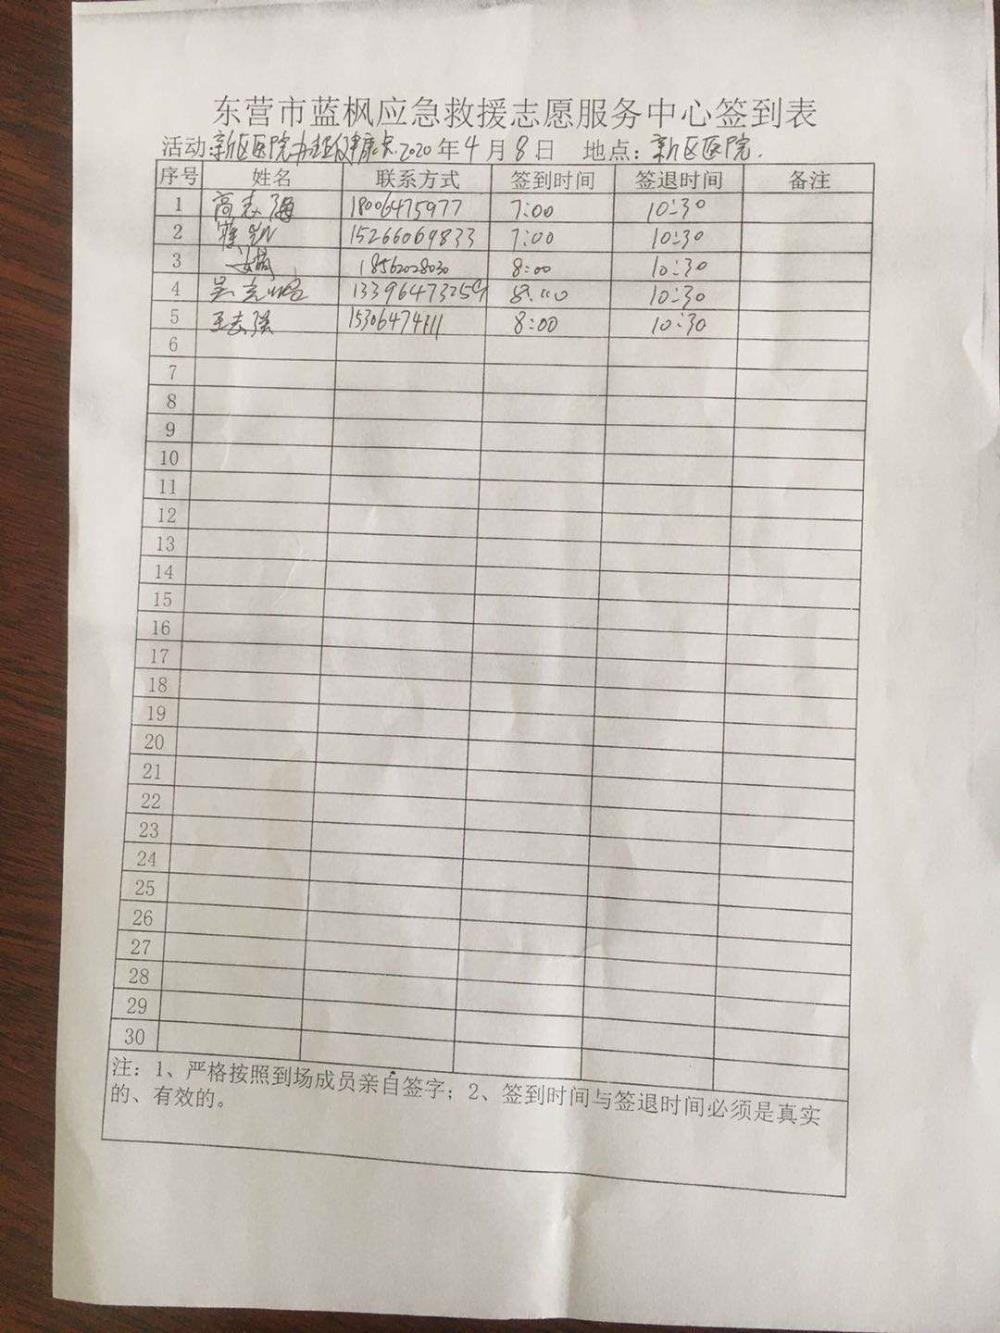 东营市蓝枫应急救援志愿服务中心签到表
活动:新区医院办理健康卡 2020年4月8日 地点:新区医院.
序号 姓名 联系方式 签到时间 签退时间 备注
1 高志强 18006475977 7:00 10:30
2 15266069833 7:00 10:30
3 18562028030 8:00 10:30
4 13396473259 8:00 10:30
5 王志强 15306474111 8:00 10:30
6
7
8
9
10
11
12
13
14
15
16
17
18
19
20
21
22
23
24
25
26
27
28
29
30
注:1、严格按照到场成员亲自签字;2、签到时间与签退时间必须是真实
的、有效的。